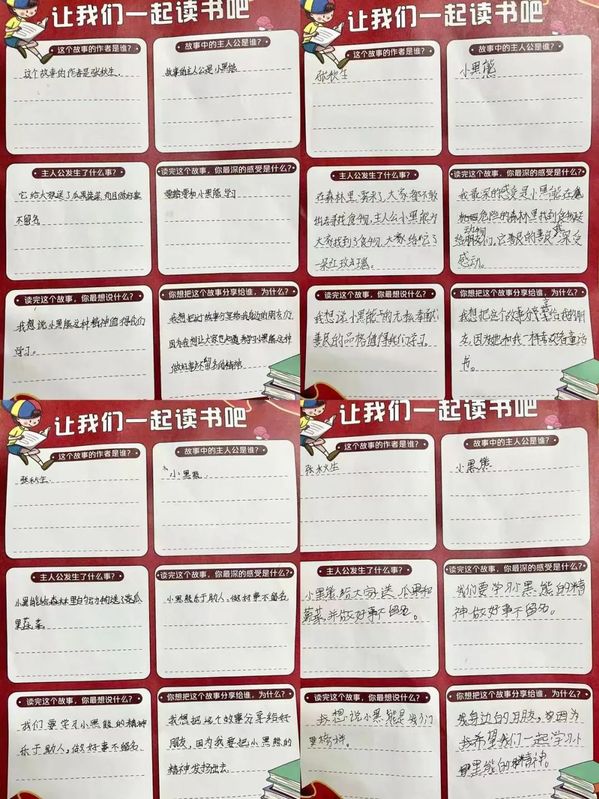 让我们一起读书吧
这个故事的作者是谁?
这个故事的作者是张秋生.
故事中的主人公是谁?
故事的主人公是小黑熊
主人公发生了什么事?
它给大家送了瓜果蔬菜,而且做好事
不留名
读完这个故事,你最深的感受是什么?
要和小黑熊学习
读完这个故事,你最想说什么?
我想说小黑熊这种精神值得我们
学习。
你想把这个故事分享给谁,为什么?
我想把这个故事分享给我身边的朋友们,
因为我想让大家也知道小黑熊这种
做好事不留名的精神
让我们一起读书吧
这个故事的作者是谁?
张秋生
故事中的主人公是谁?
小黑熊
主人公发生了什么事?
在森林里,雾来了,大家都不敢
出去寻找食物,主人公小黑熊为
大家找到了食物,大家给它了
一朵红玫瑰。
读完这个故事,你最深的感受是什么?
我最深的感受是小黑熊在
危险的森林里找到食物送
给动物们,它善良的 深受
感动。
读完这个故事,你最想说什么?
我想说小黑熊的无私奉献
善良的品格值得我们学习。
你想把这个故事分享给谁,为什么?
我想把这个故事分享给我的朋
友,因为她和我一样喜欢看童话
书。
让我们一起读书吧
这个故事的作者是谁?
张秋生
故事中的主人公是谁?
小黑熊
主人公发生了什么事?
小黑熊给森林里的动物送了瓜
果蔬菜
读完这个故事,你最深的感受是什么?
小黑熊乐于助人、做好事不留名
读完这个故事,你最想说什么?
我们要学习小黑熊的精神
乐于助人,做好事不留名
你想把这个故事分享给谁,为什么?
我想把这个故事分享给好
朋友,因为我要把小黑熊的
精神发扬出去
让我们一起读书吧
这个故事的作者是谁?
张秋生
故事中的主人公是谁?
小黑熊
主人公发生了什么事?
小黑熊给大家送瓜果和
蔬菜,并做好事不留名。
读完这个故事,你最深的感受是什么?
我们要学习小黑熊的精
神做好事不留名。
读完这个故事,你最想说什么?
我想说小黑熊是我们
榜样。
你想把这个故事分享给谁,为什么?
我身边的朋友,因为
我希望我们一起学习小
黑熊的精神。